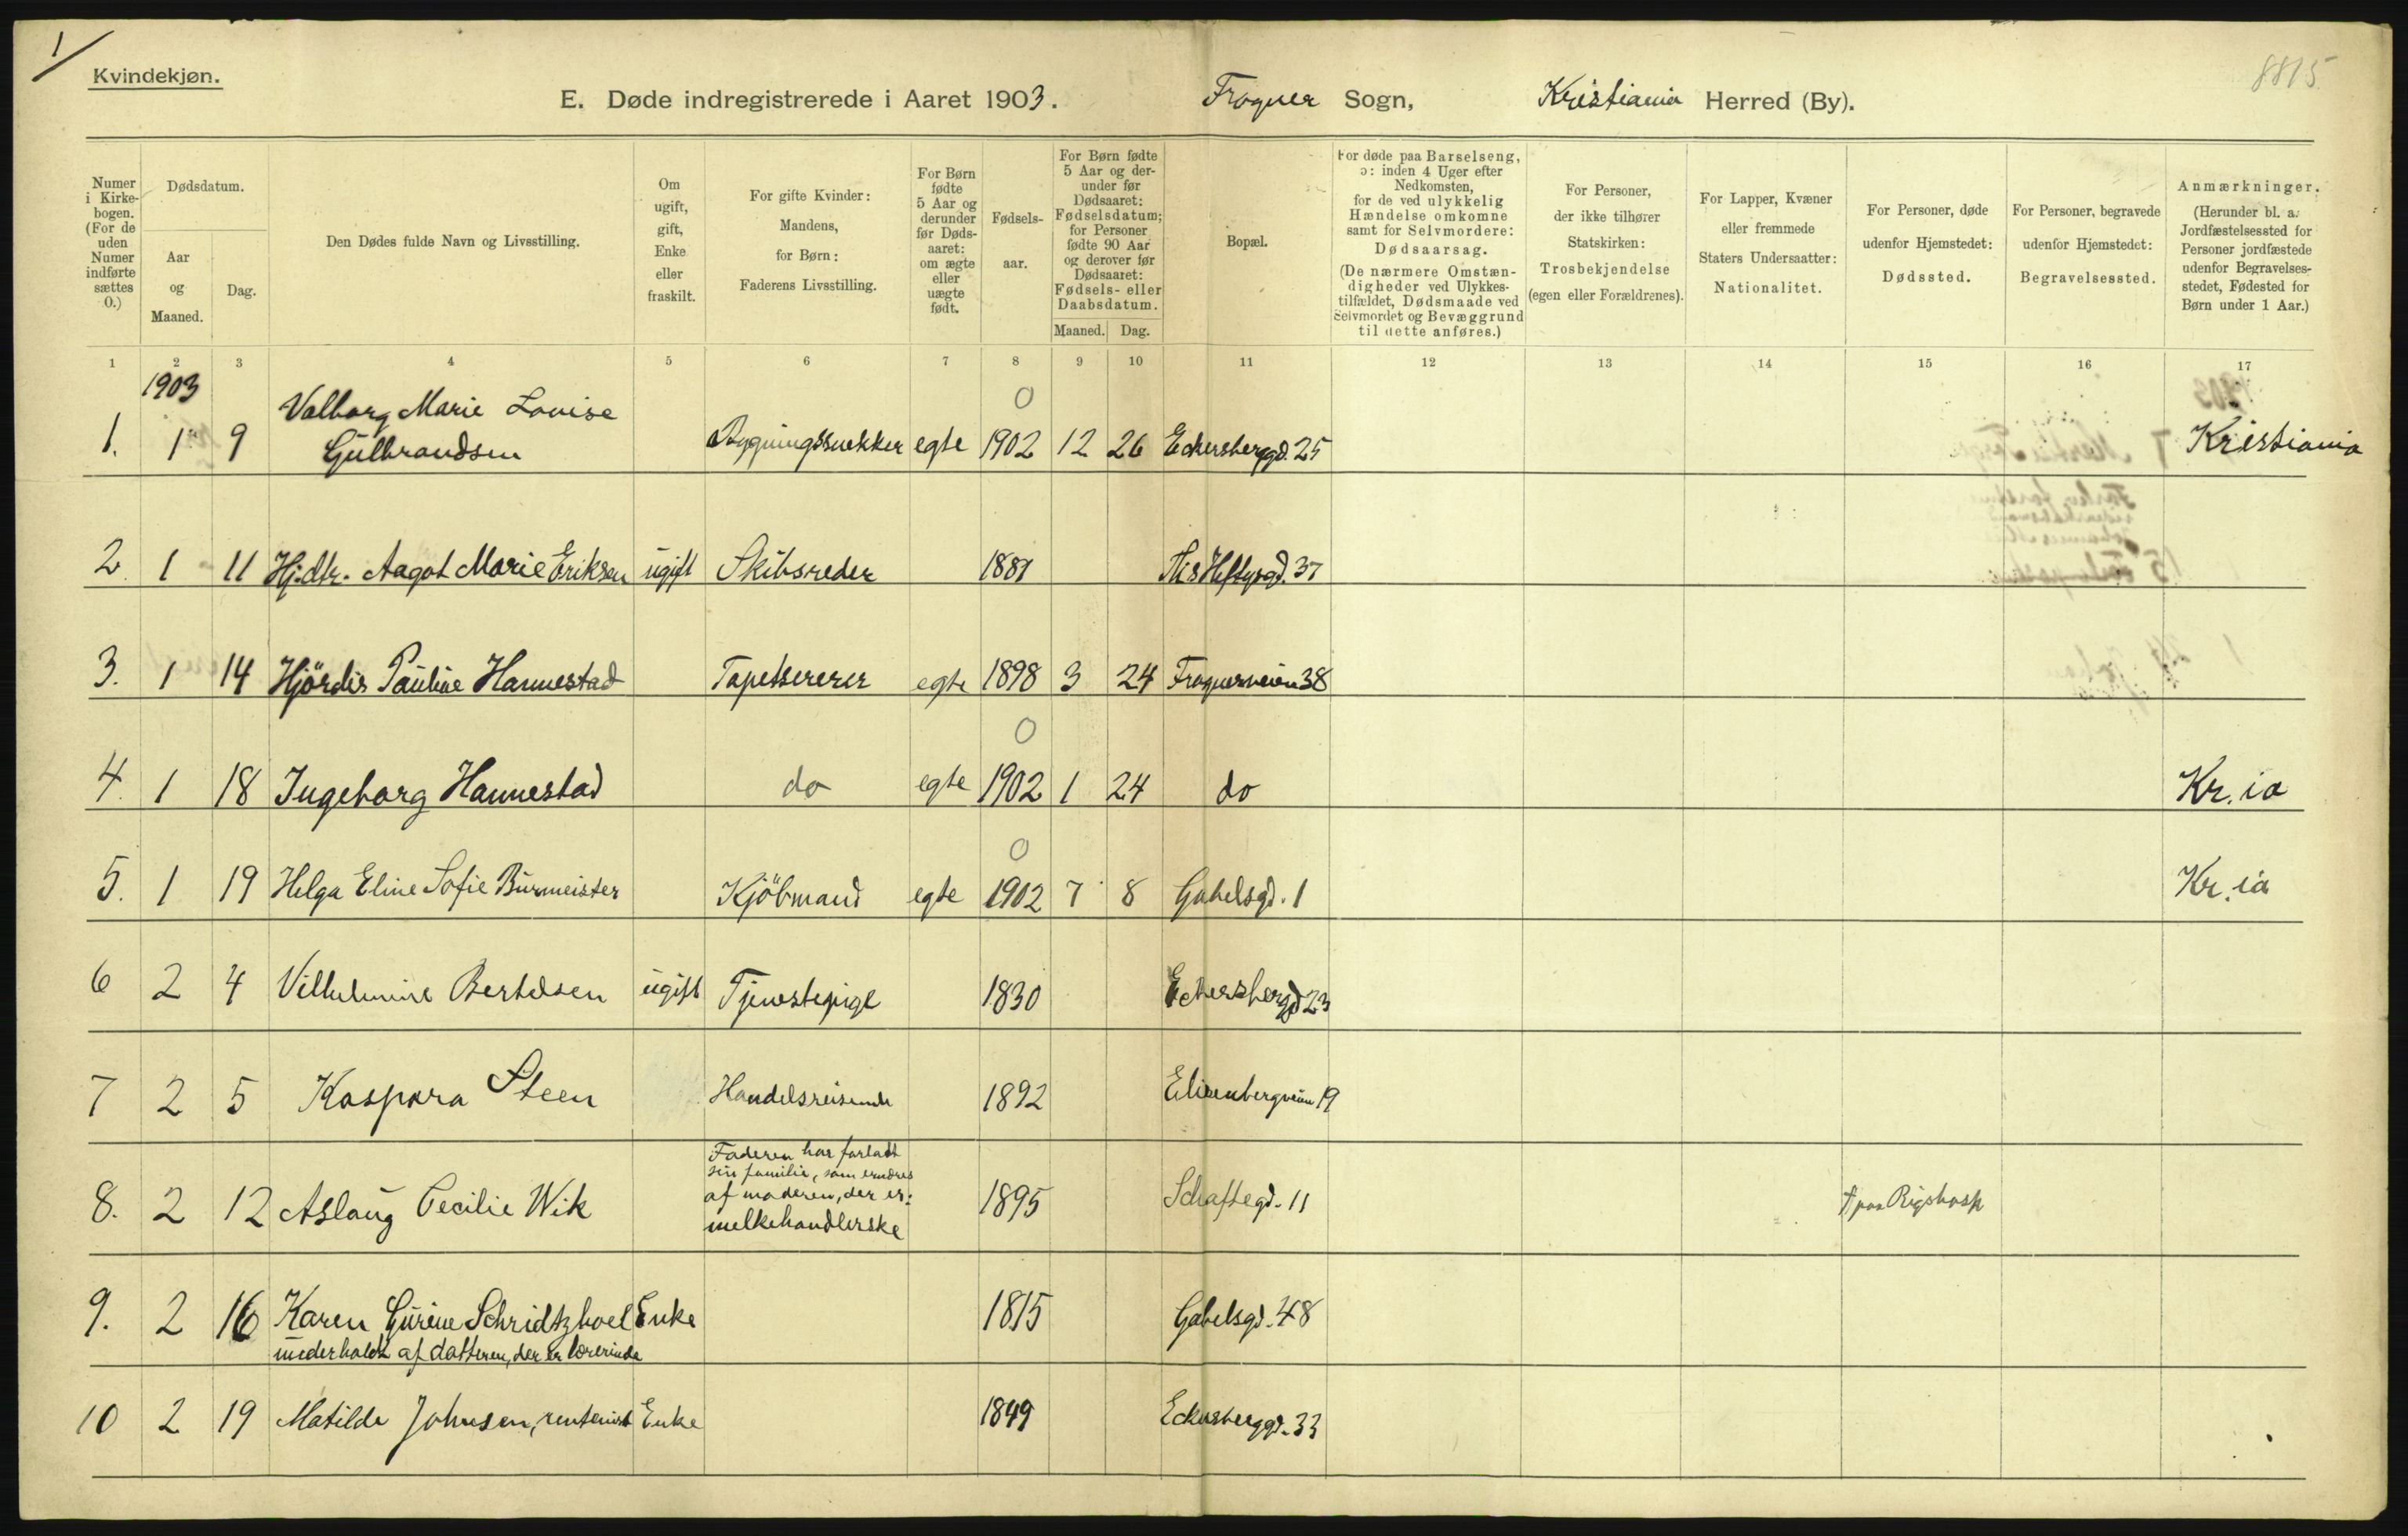 1
Kvindekjøn.
8815
E. Døde indregistrerede i Aaret 1903. Frogner Sogn, Kristiania Herred (By).
Numer i Kirkebogen. (For de uden Numer indførte sættes 0.)
Dødsdatum.
Aar og Maaned.
Dag.
Den Dødes fulde Navn og Livsstilling.
Om ugift, gift, Enke eller fraskilt.
For gifte Kvinder: Mandens, for Børn: Faderens Livsstilling.
For Børn fødte 5 Aar og derunder før Dødsaaret: om ægte eller uægte født.
Fødselsaar.
For Børn fødte 5 Aar og derunder før Dødsaaret: Fødselsdatum; for Personer fødte 90 Aar og derover før Dødsaaret: Fødsels- eller Daabsdatum.
Maaned. Dag.
Bopæl.
For døde paa Barselseng, ɔ: inden 4 Uger efter Nedkomsten, for de ved ulykkelig Hændelse omkomne samt for Selvmordere: Dødsaarsag. (De nærmere Omstændigheder ved Ulykkestilfældet, Dødsmaade ved Selvmordet og Bevæggrund til dette anføres.)
For Personer, der ikke tilhører Statskirken: Trosbekjendelse (egen eller Forældrenes).
For Lapper, Kvæner eller fremmede Staters Undersaatter: Nationalitet.
For Personer, døde udenfor Hjemstedet: Dødssted.
For Personer, begravede udenfor Hjemstedet: Begravelsessted.
Anmærkninger. (Herunder bl. a. Jordfæstelsessted for Personer jordfæstede udenfor Begravelsesstedet, Fødested for Børn under 1 Aar.)
1 2 3 4 5 6 7 8 9 10 11 12 13 14 15 16 17
1903
Valborg Marie Louise 0
1. 1 9 Gulbrandsen Bygningssnekker egte 1902 12 26 Eckersberggd. 25 Kristiania
2 1 11 Hj.dtr. Aagot Marie Eriksen ugift Skibsreder 1881 Ths Heftysgd. 37
3. 1 14 Hjördis Pauline Hannestad Tapetsererer egte 1898 3 24 Frognerveien 38
0
4. 1 18 Ingeborg Hannestad do egte 1902 1 24 do Kr.ia
0
5. 1 19 Helga Eline Sofie Burmeister Kjöbmand egte 1902 7 8 Gabelsgd. 1 Kr.ia
6 2 4 Vilhelmine Bertelsen ugift Tjenestepige 1830 Eckersberggd 23
7 2 5 Kaspara Steen Handelsreisende 1892 Elisenbergveien 19
Faderen har forladt
sin familie, som ernæres
af moderen, der er:
melkehandlerske
8. 2 12 Aslaug Cecilie Wik 1895 Schaftegd. 11 † paa Rigshosp
9. 2 16 Karen Gurine Schridtzhoel Enke 1815 Gabelsgd. 48
underholdt af datteren, der er lærerinde
10 2 19 Matilde Johnsen, rentenist Enke 1849 Eckersberggd. 33